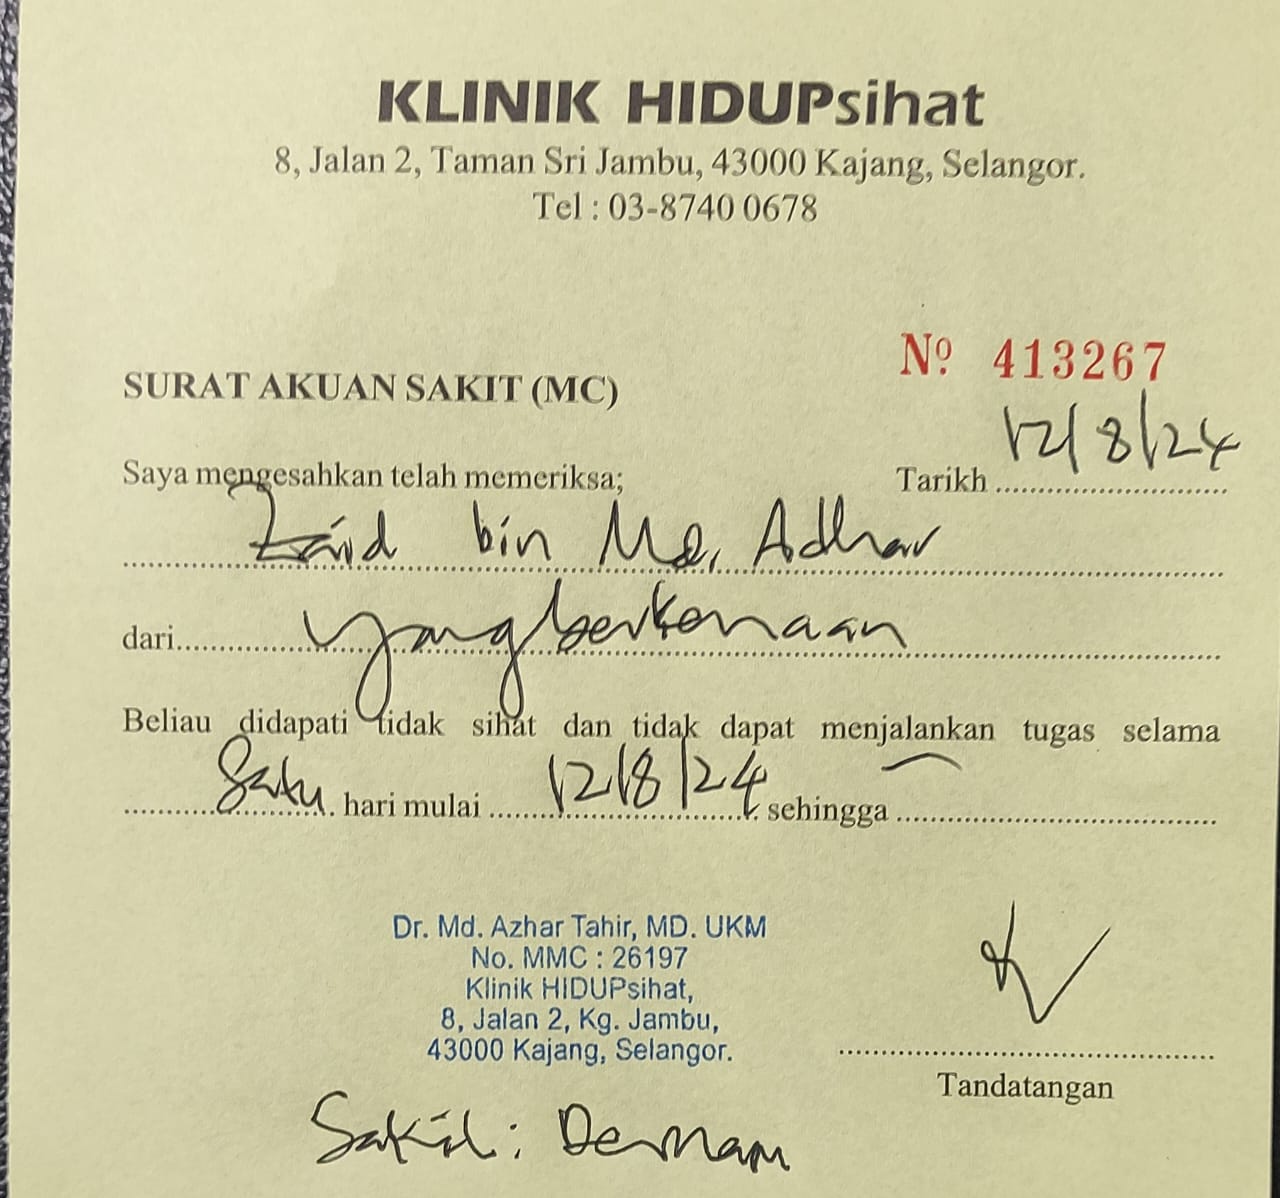 KLINIK HIDUPsihat
8, Jalan 2, Taman Sri Jambu, 43000 Kajang, Selangor.
Tel : 03-8740 0678
Nº 413267
SURAT AKUAN SAKIT (MC)
Saya mengesahkan telah memeriksa; Tarikh 12/8/24
Zaid bin Md. Adhar
dari yang berkenaan
Beliau didapati tidak sihat dan tidak dapat menjalankan tugas selama
Satu hari mulai 12/8/24 sehingga —
Dr. Md. Azhar Tahir, MD. UKM
No. MMC : 26197
Klinik HIDUPsihat,
8, Jalan 2, Kg. Jambu,
43000 Kajang, Selangor.
Tandatangan
Sakit : Demam